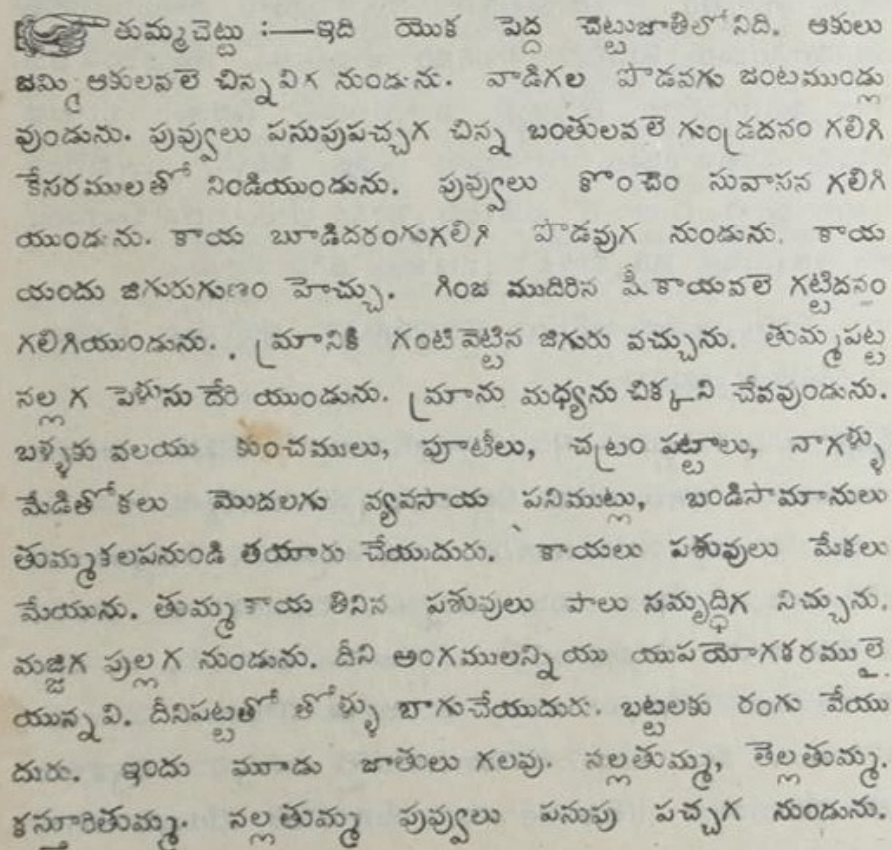 తుమ్మచెట్టు :—ఇది యొక పెద్ద చెట్టుజాతిలోనిది. ఆకులు
జమ్మి ఆకులవలె చిన్నవిగ నుండును. వాడిగల పొడవగు జంటముండ్లు
వుండును. పువ్వులు పసుపుపచ్చగ చిన్న బంతులవలె గుండ్రదనం గలిగి
కేసరములతో నిండియుండును. పువ్వులు కొంచెం సువాసన గలిగి
యుండును. కాయ బూడిదరంగుగలిగి పొడవుగ నుండును. కాయ
యందు జిగురుగుణం హెచ్చు. గింజ ముదిరిన షీకాయవలె గట్టిదనం
గలిగియుండును. మ్రానికి గంటివెట్టిన జిగురు వచ్చును. తుమ్మపట్ట
నల్లగ పెళుసుదేరి యుండును. మ్రాను మధ్యను చిక్కని చేవవుండును.
బళ్ళకు వలయు కుంచములు, పూటీలు, చట్రం పట్టాలు, నాగళ్ళు
మేడితోకలు మొదలగు వ్యవసాయ పనిముట్లు, బండిసామానులు
తుమ్మకలపనుండి తయారు చేయుదురు. కాయలు పశువులు మేకలు
మేయును. తుమ్మకాయ తినిన పశువులు పాలు సమృద్ధిగ నిచ్చును.
మజ్జిగ పుల్లగ నుండును. దీని అంగములన్నియు యుపయోగకరములై
యున్నవి. దీనిపట్టతో తోళ్ళు బాగుచేయుదురు. బట్టలకు రంగు వేయు
దురు. ఇందు మూడు జాతులు గలవు. నల్లతుమ్మ, తెల్లతుమ్మ.
కస్తూరితుమ్మ. నల్లతుమ్మ పువ్వులు పసుపు పచ్చగ నుండును.